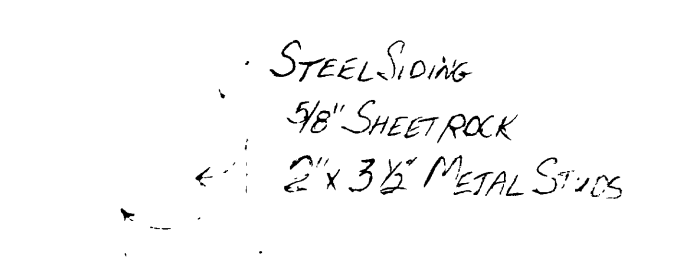 STEEL SIDING
5/8" SHEETROCK
2" X 3 1/2" METAL STUDS